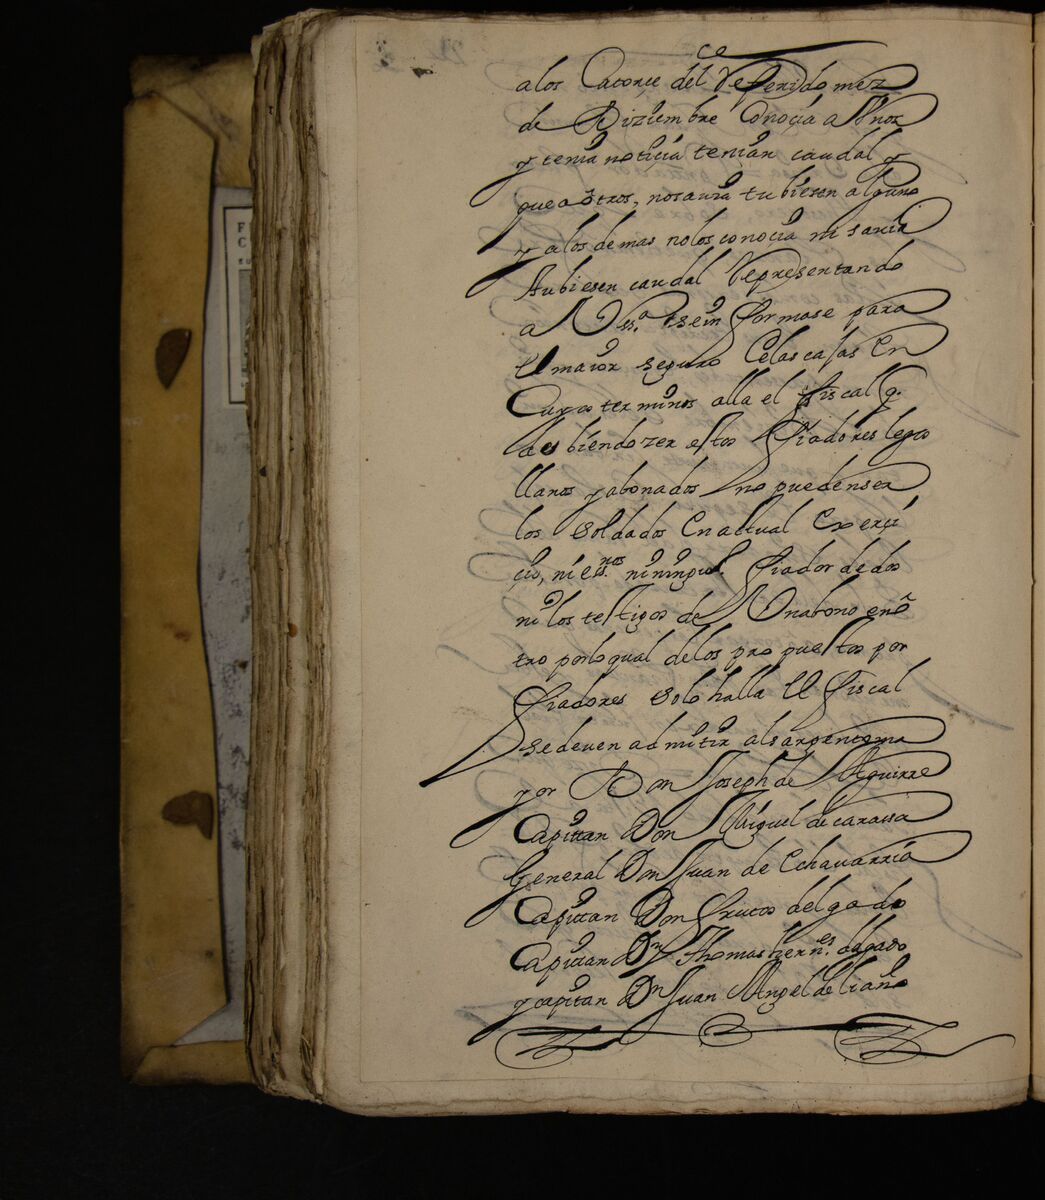 alos Catorçe del Referido mez
de Diziembre Conoçia a Vnos
y tenia notiçia tenian caudal y
que a otros, no savia tubiesen alguno
y alos demas nolos conoçia ni savia
hubiesen caudal Representando
a Vssª sein formase para
el maior seguro Celas cajas En
Cuyos terminos alla el fiscal q.
debiendo zer estos fiadores legos
llanos y abonados no pueden ser
los Soldados En actual Exerçi
çio, ni es.nos ningun fiador de dos
ni los testigos de Vn abono en õ
tro porlo qual delos propuestos por
fiadores solo halla El fiscal
se deven admitir al sargentoma
yor Don Joseph de Aguirre
Capitan Don Miguel de
General Don Juan de Echavarria
Capitan Don frutos delgado
Capitan Dn Thomas hern.es delgado
y capitan Dn Juan Angel de liaño